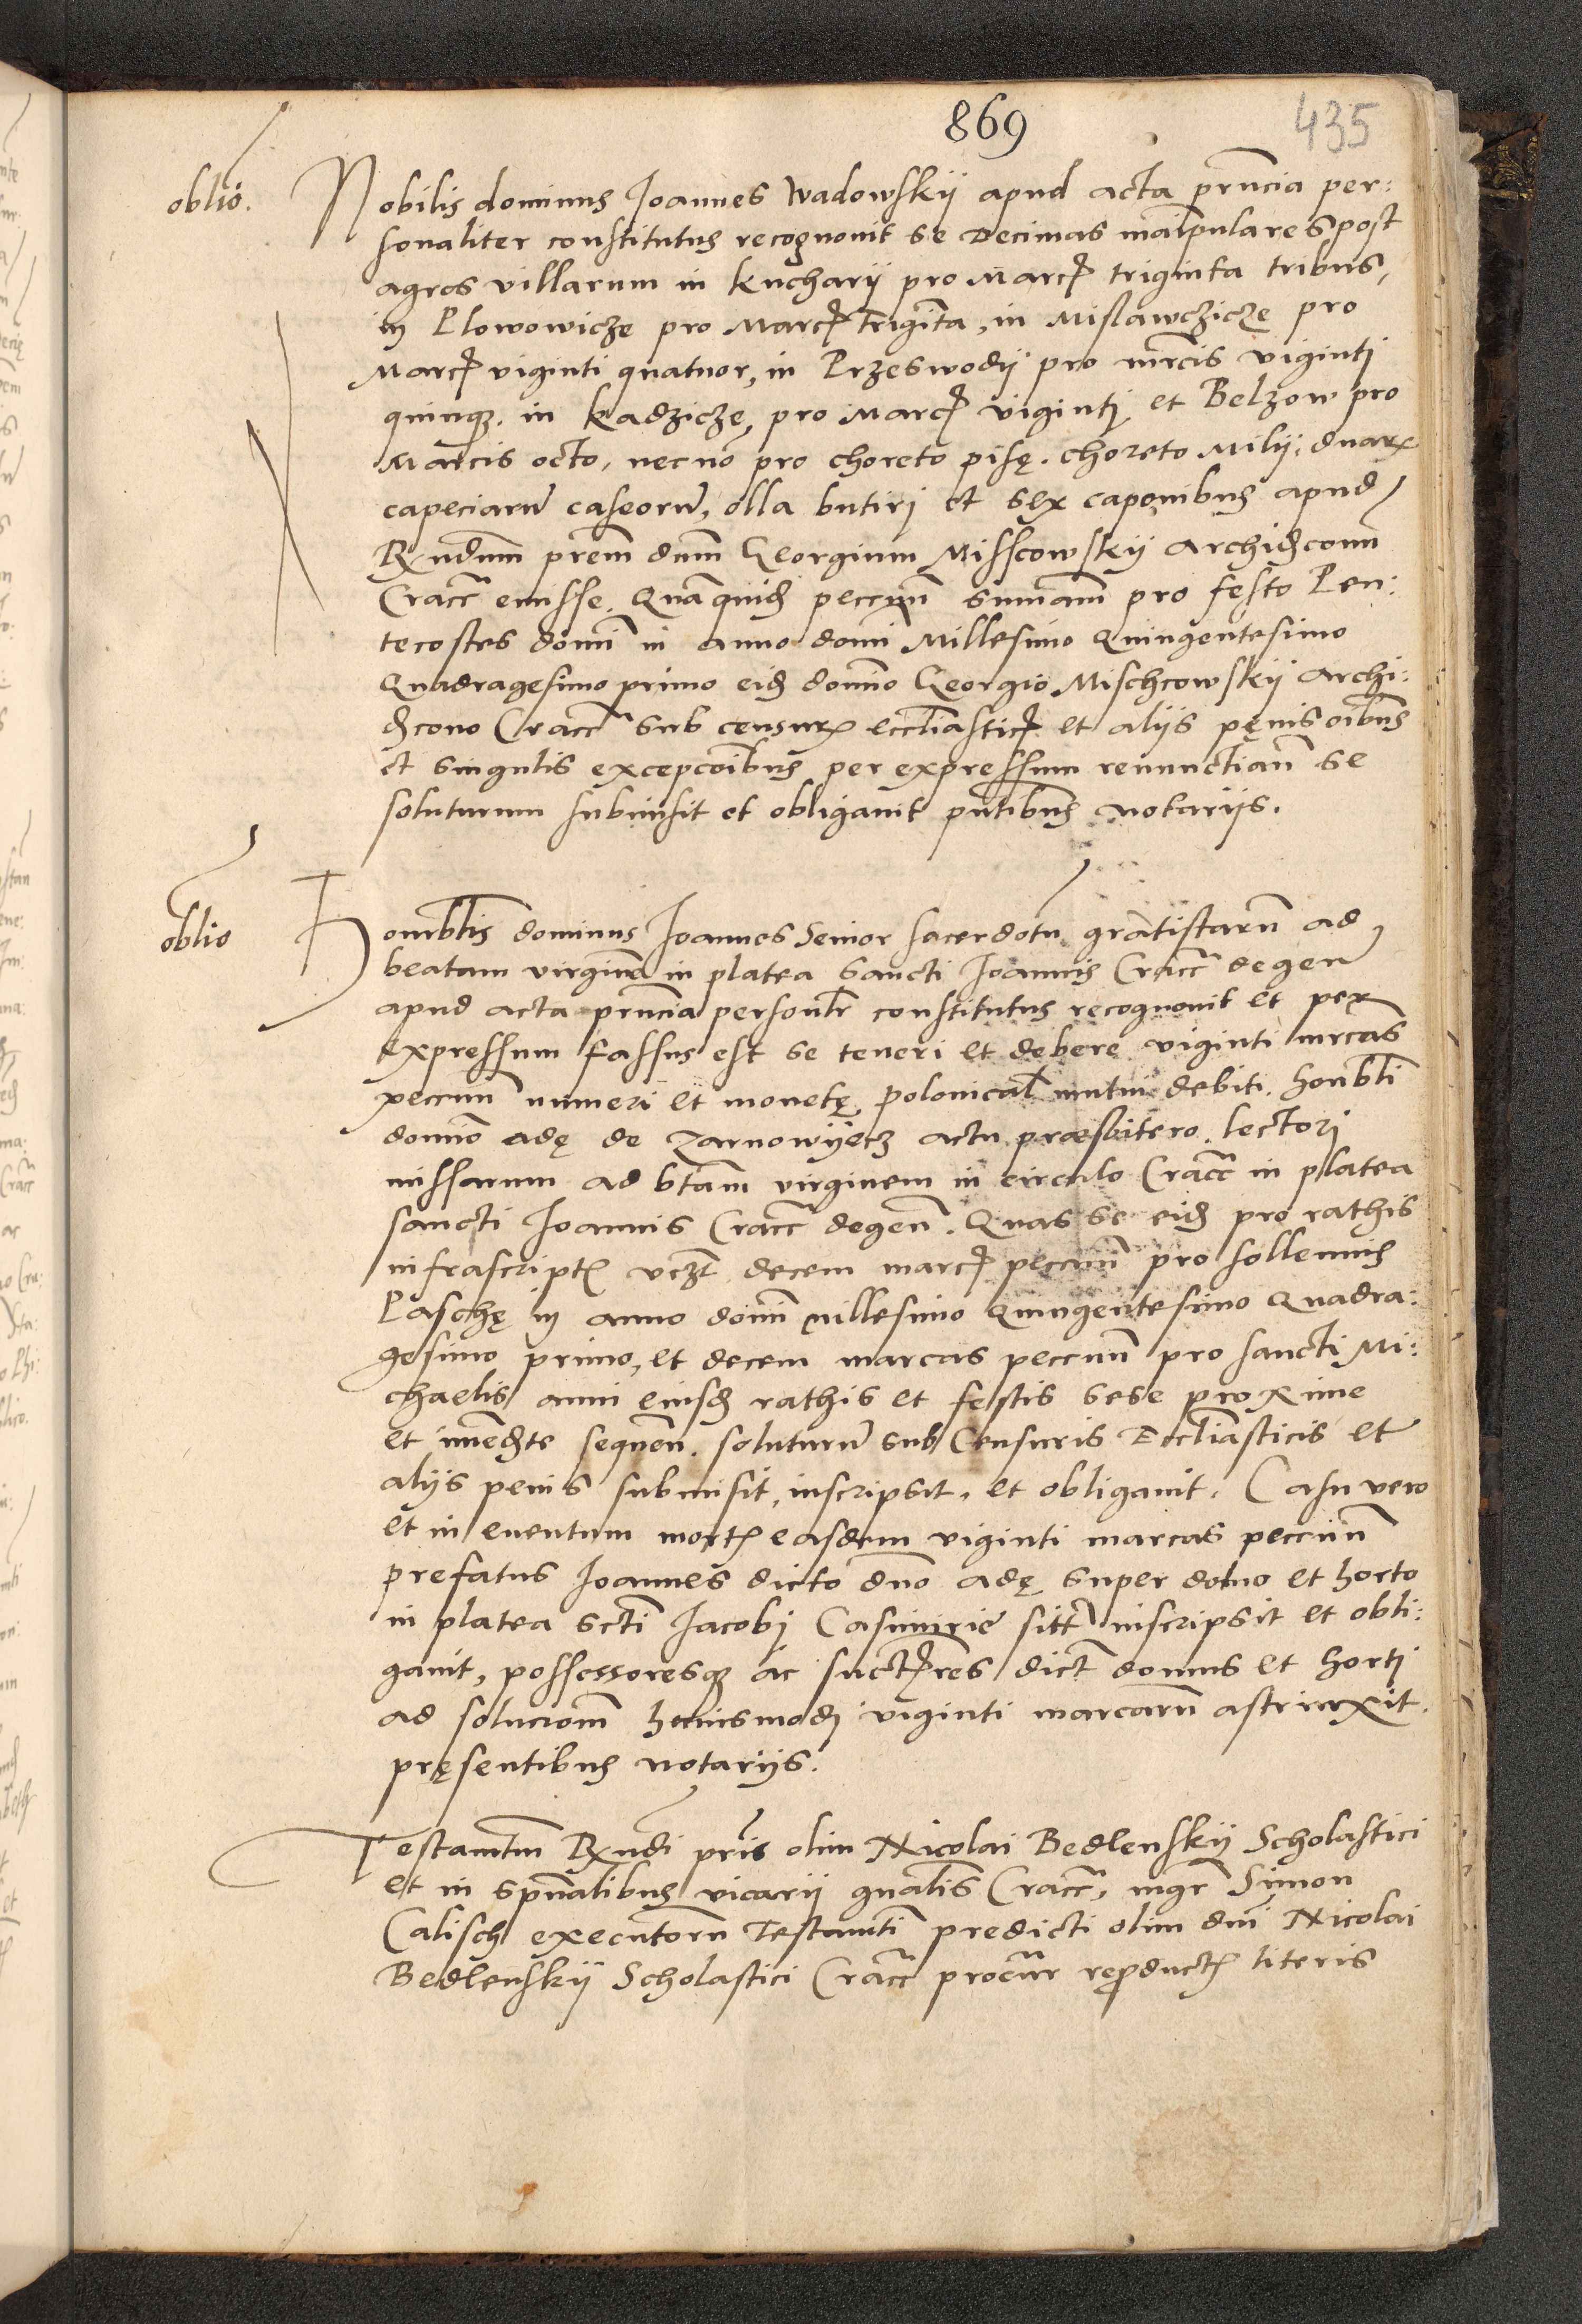 869
435
oblio.
Nobilis dominus Joannes Wadowskij apud acta prncia per:
sonaliter constitutus recognouit se Decimas maipulares post
agros villarum in Kucharij pro Marc triginta tribus,
in Plowowicze pro Marc triginta, in Mislawczicze pro
Marc viginti quatuor, in Przeswodij pro mrcis viginti
quinq. in Kadzicze, pro Marc viginti et Belzow pro
Marcis octo, necno pro choreto pise. choreto Milij: duar
capeciaru caseoru, olla butiri et sex caponibus apud
Rndum prem dnm Georgium Misscowskij Archidconu
Cracc emisse. Quaquid peccun summam pro festo Pen:
tecostes domi in anno domi Millesimo Quingentesimo
Quadragesimo primo eid domino Georgio Mischcowskij Archi:
dcono Cracc sub censur eccliastic et alijs penis oibus
et singulis excepcoibus per expressum renunctian se
soluturum submisit et obligauit pntibus notarijs.
oblio
Honrblis dominus Joannes Senior sacerdotu gratistaru ad
beatam virgine in platea Sancti Joannis Cracc degen
apud acta prncia personlr constitutus recognouit et per
expressum fassus est se teneri et debere viginti mrcas
peccun numeri et monete polonical mutui debiti. honbli
domino ade de Zarnowijecz actu præsbitero. lectori
missarum ad btam virginem in circulo Cracc in platea
sancti Joannis Cracc degen. Quas se eid pro rathis
infrascript vczt decem marc peccun pro sollemnis
Pasche in anno domi millesimo Quingentesimo Quadra:
gesimo primo, et decem marcas peccun pro sancti Mi:
chaelis anni eiusd rathis et festis sese proxime
et imedte sequen. soluturu sub Censuris Eccliasticis et
alijs penis submisit, inscripsit, et obligauit. Casu vero
et in euentum mort easdem viginti marcas peccun
prefatus Joannes dicto dno ade super domo et horto
in platea scti Jacobi Casimirie sitt inscripsit et obli:
gauit, possessoresq ac succres dict domus et horti
ad solucionm huiusmodi viginti marcaru astrinxit.
presentibus notarijs.
Testamtm Rndi pris olim Nicolai Bedlenskij Scholastici
et in spualibus vicarij gnalis Cracc, mgr Simon
Calisch executoru Testamti predicti olim dni Nicolai
Bedlenskij Scholastici Cracc procur reproduct literis